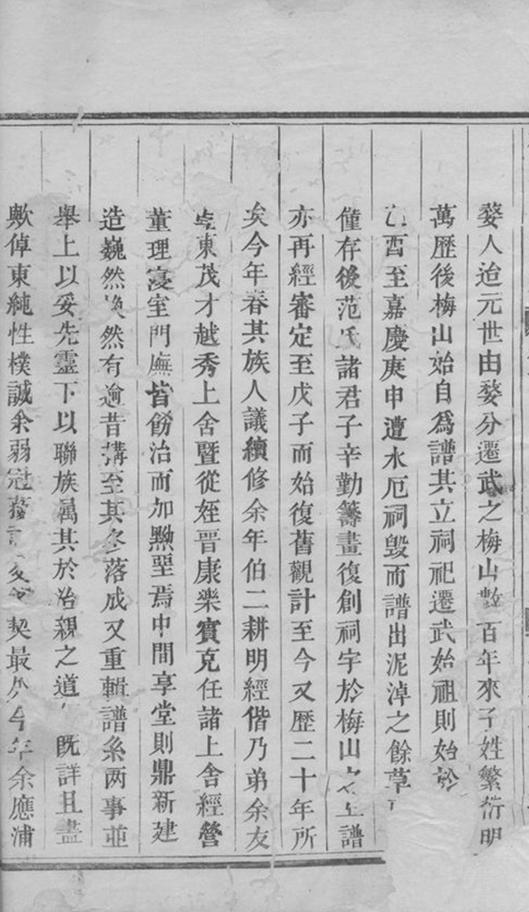 婺人迨元世由婺分遷武之梅山數百年來子姓繁衍明
萬歷後梅山始自爲譜其立祠祀遷武始祖則始於
乙酉至嘉慶庚申遭水厄祠毀而譜出泥淖之餘草
僅存後范氏諸君子辛勤籌畫復創祠宇於梅山之上譜
亦再經審定至戊子而始復舊觀計至今又歷二十年所
矣今年春其族人議續修余年伯二耕明經偕乃弟余友
東茂才越秀上舍暨從姪晋康樂賓克任諸上舍經營
董理寝室門廡皆飭治而加黝堊焉中間享堂則鼎新建
造巍然煥然有逾昔構至其冬落成又重輯譜系两事並
舉上以妥先靈下以聯族属其於治親之道 既詳且盡
歟倬東純性樸誠余弱冠 契最 今年余應浦